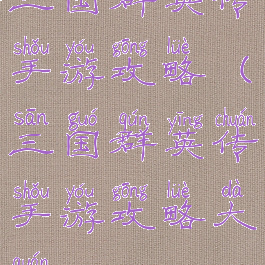 三国群英传
shǒu yóu gōng lüè
手游攻略（
sān guó qún yīng chuán
三国群英传
shǒu yóu gōng lüè dà
手游攻略大
quán